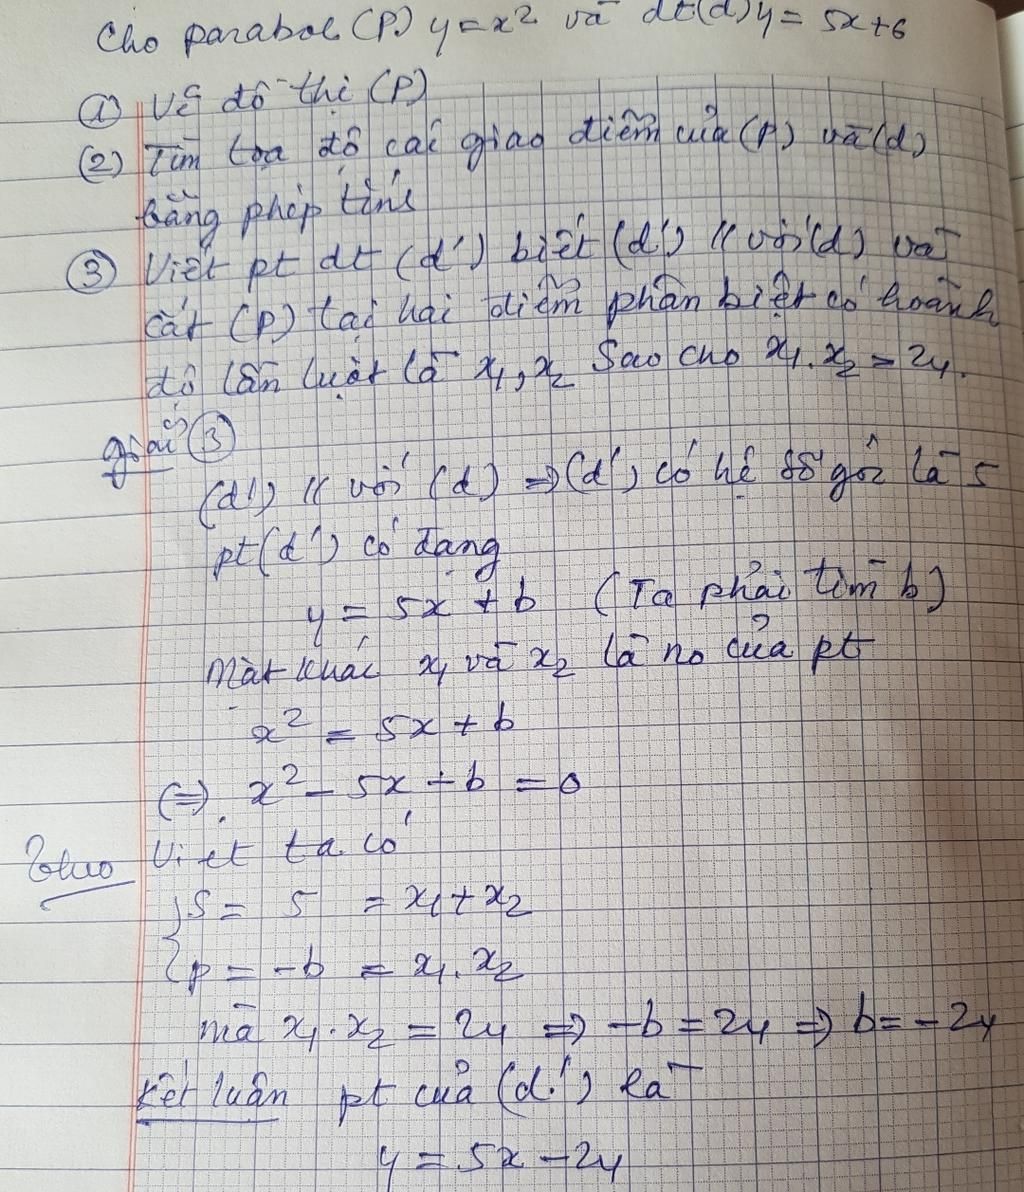 Cho parabol (P) y = x² và dt(d) y = 5x+6
① Vẽ đồ thị (P)
(2) Tìm tọa độ các giao điểm của (P) và (d)
bằng phép tính
③ Viết pt dt (d') biết (d') // với (d) và
cắt (P) tại hai điểm phân biệt có hoành
độ lần lượt là x₁, x₂ sao cho x₁.x₂ = 24.
giải ③
(d') // với (d) => (d') có hệ số góc là 5
pt (d') có dạng
y = 5x + b (Ta phải tìm b)
Mặt khác x₁ và x₂ là no của pt
x² = 5x + b
<=> x² - 5x - b = 0
Theo Viet ta có
{ S = 5 = x₁ + x₂
{ p = -b = x₁.x₂
mà x₁.x₂ = 24 => -b = 24 => b = -24
Kết luận pt của (d') là
y = 5x - 24